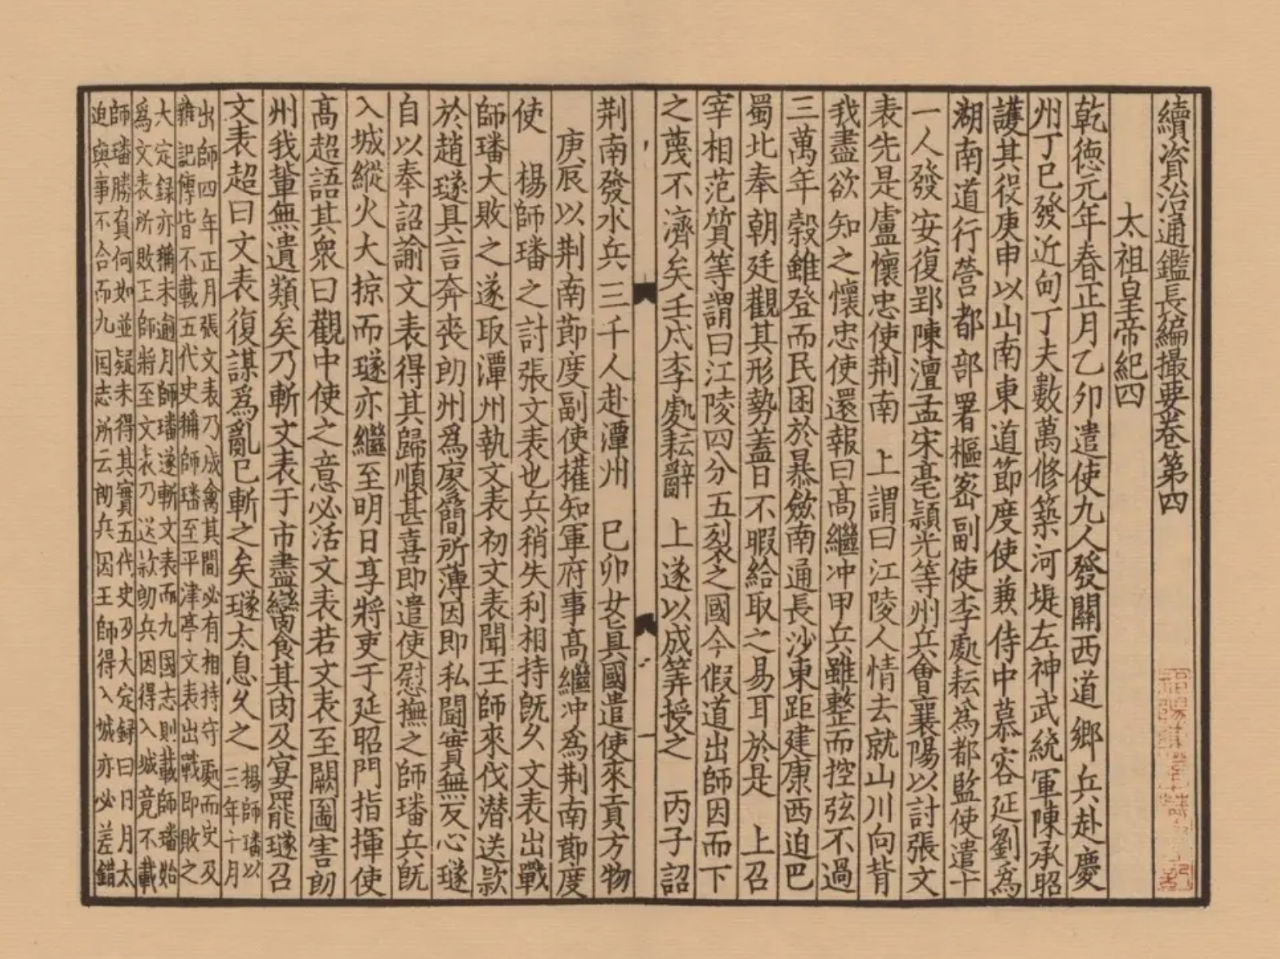 續資治通鑑長編撮要卷第四
太祖皇帝紀四
乾德元年春正月乙卯遣使九人發關西道鄉兵赴慶
州丁巳發近甸丁夫數萬修築河堤左神武統軍陳承昭
護其役庚申以山南東道節度使兼侍中慕容延釗為
湖南道行營都部署樞密副使李處耘為都監使遣十
一人發安復郢陳澶孟宋亳潁光等州兵會襄陽以討張文
表先是盧懷忠使荆南 上謂曰江陵人情去就山川向背
我盡欲知之懷忠使還報曰高繼冲甲兵雖整而控弦不過
三萬年穀雖登而民困於暴斂南通長沙東距建康西迫巴
蜀北奉朝廷觀其形勢蓋日不暇給取之易耳於是 上召
宰相范質等謂曰江陵四分五裂之國今假道出師因而下
之蔑不濟矣壬戌李處耘辭 上遂以成筭授之 丙子詔
荆南發水兵三千人赴潭州 己卯女真國遣使來貢方物
庚辰以荆南節度副使權知軍府事高繼冲為荆南節度
使 楊師璠之討張文表也兵稍失利相持既久文表出戰
師璠大敗之遂取潭州執文表初文表聞王師來伐潛送款
於趙璲具言奔喪朗州為廖簡所薄因即私鬪實無反心璲
自以奉詔諭文表得其歸順甚喜即遣使慰撫之師璠兵既
入城縱火大掠而璲亦繼至明日享將吏于延昭門指揮使
高超語其衆曰觀中使之意必活文表若文表至闕圖害朗
州我輩無遺類矣乃斬文表于市盡臠食其肉及宴罷璲召
文表超曰文表復謀為亂已斬之矣璲太息久之 楊師璠以
三年十月
出師四年正月張文表乃成禽其間必有相持守處而史及
雜記傳皆不載五代史稱師璠至平津亭文表出戰即敗之
大定録亦稱未逾月師璠遂斬文表而九國志則載師璠始
為文表所敗王師將至文表乃送款朗兵因得入城竟不載
師璠勝負何如並疑未得其實五代史乃大定録曰日月太
迫與事不合而九國志所云朗兵因王師得入城亦必差錯